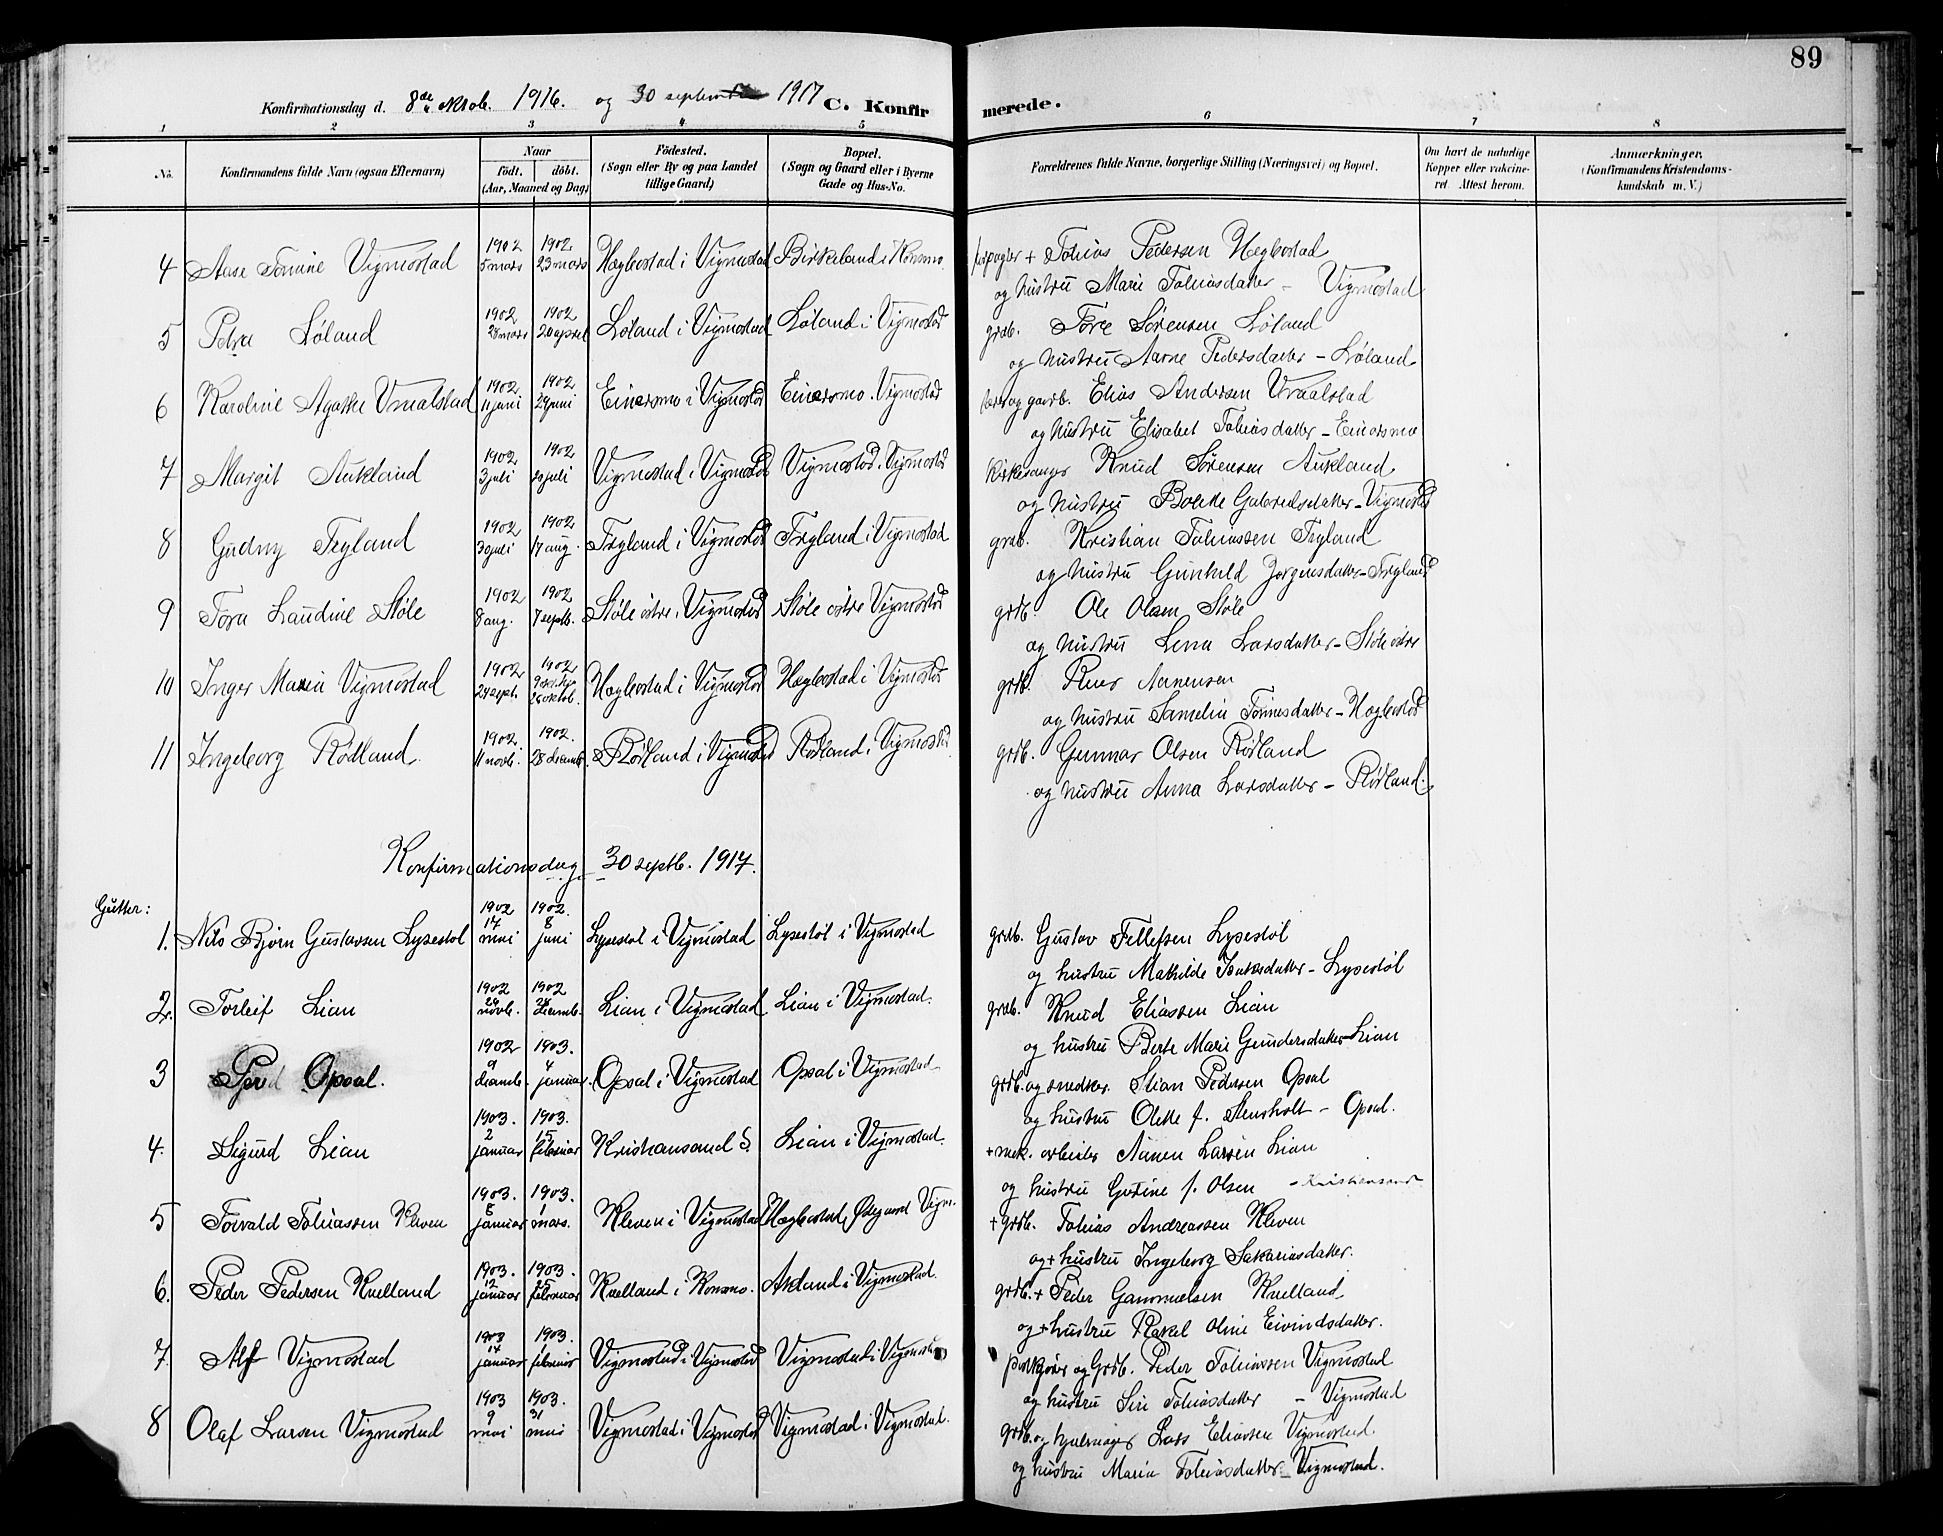 89
Konfirmationsdag d. 8de oktob. 1916. og 30 septem 1917 C. Konfirmerede.
1 2 3 4 5 6 7 8
No. Konfirmandens fulde Navn (ogsaa Efternavn) Naar født. døbt. (Aar, Maaned og Dag) Fødested. (Sogn eller By og paa Landet tillige Gaard) Bopæl. (Sogn og Gaard eller i Byerne Gade og Hus-No. Forældrenes fulde Navne, borgerlige Stilling (Næringsvei) og Bopæl. Om havt de naturlige Kopper eller vakcineret. Attest herom. Anmærkninger. (Konfirmandens Kristendomskundskab m. V.)
4 Aase Tomine Vigmostad 1902 5 mars 1902 23 mars Hægbostad i Vigmostad Birkeland i Konsmo + Tobias Pedersen Hegbostad
og hustru Marie Tobiasdatter – Vigmostad
5 Petra Løland 1902 28 mars 1902 20 april Løland i Vigmostad Løland i Vigmostad grdb. Tore Sørensen Løland
og hustru Aarne Pedersdatter – Løland
6 Karoline Agathe Vraalstad 1902 11 juni 1902 29 juni Einersmo i Vigmostad Einersmo. Vigmostad og gardb. Elias Andersen Vraalstad
og hustru Elisabet Tobiasdatter – Einersmo
7 Margit Aukland 1902 3 juli 1902 20 juli Vigmostad i Vigmostad Vigmostad i Vigmostad Kirkesanger Knud Sørensen Aukland
og hustru Bolette Gabrielsdatter – Vigmostad
8 Gudny Fryland 1902 30 juli 1902 17 aug. Fryland i Vigmostad Fryland i Vigmostad grdb. Kristian Tobiassen Fryland
og hustru Gunhild Jørgensdatter – Fryland
9 Tora Laudine Støle 1902 8 aug. 1902 7 septb. Støle østre i Vigmostad Støle østre Vigmostad grdb. Ole Olsen Støle
og hustru Lena Larsdatter – Støle østre
10 Inger Marie Vigmostad 1902 24 sept. 1902 26 oktob. Hægbostad i Vigmostad Hægbostad i Vigmostad grdb. Aanensen
og hustru Sameline Tønnesdatter – Hægbostad
11 Ingeborg Rødland 1902 11 novb. 1902. 28 decemb. Rødland i Vigmostad Rødland i Vigmostad grdb. Gunnar Olsen Rødland
og hustru Anna Larsdatter – Rødland.
Konfirmationsdag 30 septb. 1917.
Gutter:
1. Nils Bjørn Gustavsen Lysestøl 1902 17 mai 1902. 8 juni Lysestøl i Vigmostad Lysestøl i Vigmostad grdb. Gustav Tellefsen Lysestøl
og hustru Mathilde – Lysestøl
2. Torleif Lian 1902 24 novb. 1902 28 decemb. Lian i Vigmostad Lian i Vigmostad. grdb. Knud Eliassen Lian
og hustru Berte Marie Gundersdatter – Lian
3 Opsal. 1902 9 decemb. 1903. 4 januar Opsal i Vigmostad Opsal i Vigmostad grdb. og snedker. Stian Pedersen Opsal
og hustru Olette f. Stensholt – Opsal.
4. Sigurd Lian 1903. 2 januar 1903. 15 februar Kristiansand S. Lian i Vigmostad. + mek. arbeider Aanen Larsen Lian
og hustru Gurine f. Olsen – Kristiansand
5 Torvald Tobiassen Kleven 1903. 8 januar 1903. 1 mars. Kleven i Vigmostad Hægbostad, Østgaard Vigm. + grdb. Tobias Andreassen Kleven
og + hustru Ingeborg Sakariasdatter.
6. Peder Pedersen Kvelland 1903. 12 januar 1903. 25 februar Kvelland i Konsmo. Askland i Vigmostad. grdb. + Peder Gammelsen Kvelland
og + hustru Rakel Oline Eivindsdatter.
7. Alf Vigmostad 1903 14 januar 1903. februar Vigmostad i Vigmostad Vigmostad i Vigmostad og Grdb. Peder Tobiassen Vigmostad
og hustru Siri Tobiasdatter – Vigmostad
8 Olaf Larsen Vigmostad 1903 9 mai 1903. 31 mai Vigmostad i Vigmostad Vigmostad i Vigmostad. grdb. og hjulmager Lars Eliassen Vigmostad.
og hustru Maria Tobiasdatter – Vigmostad.